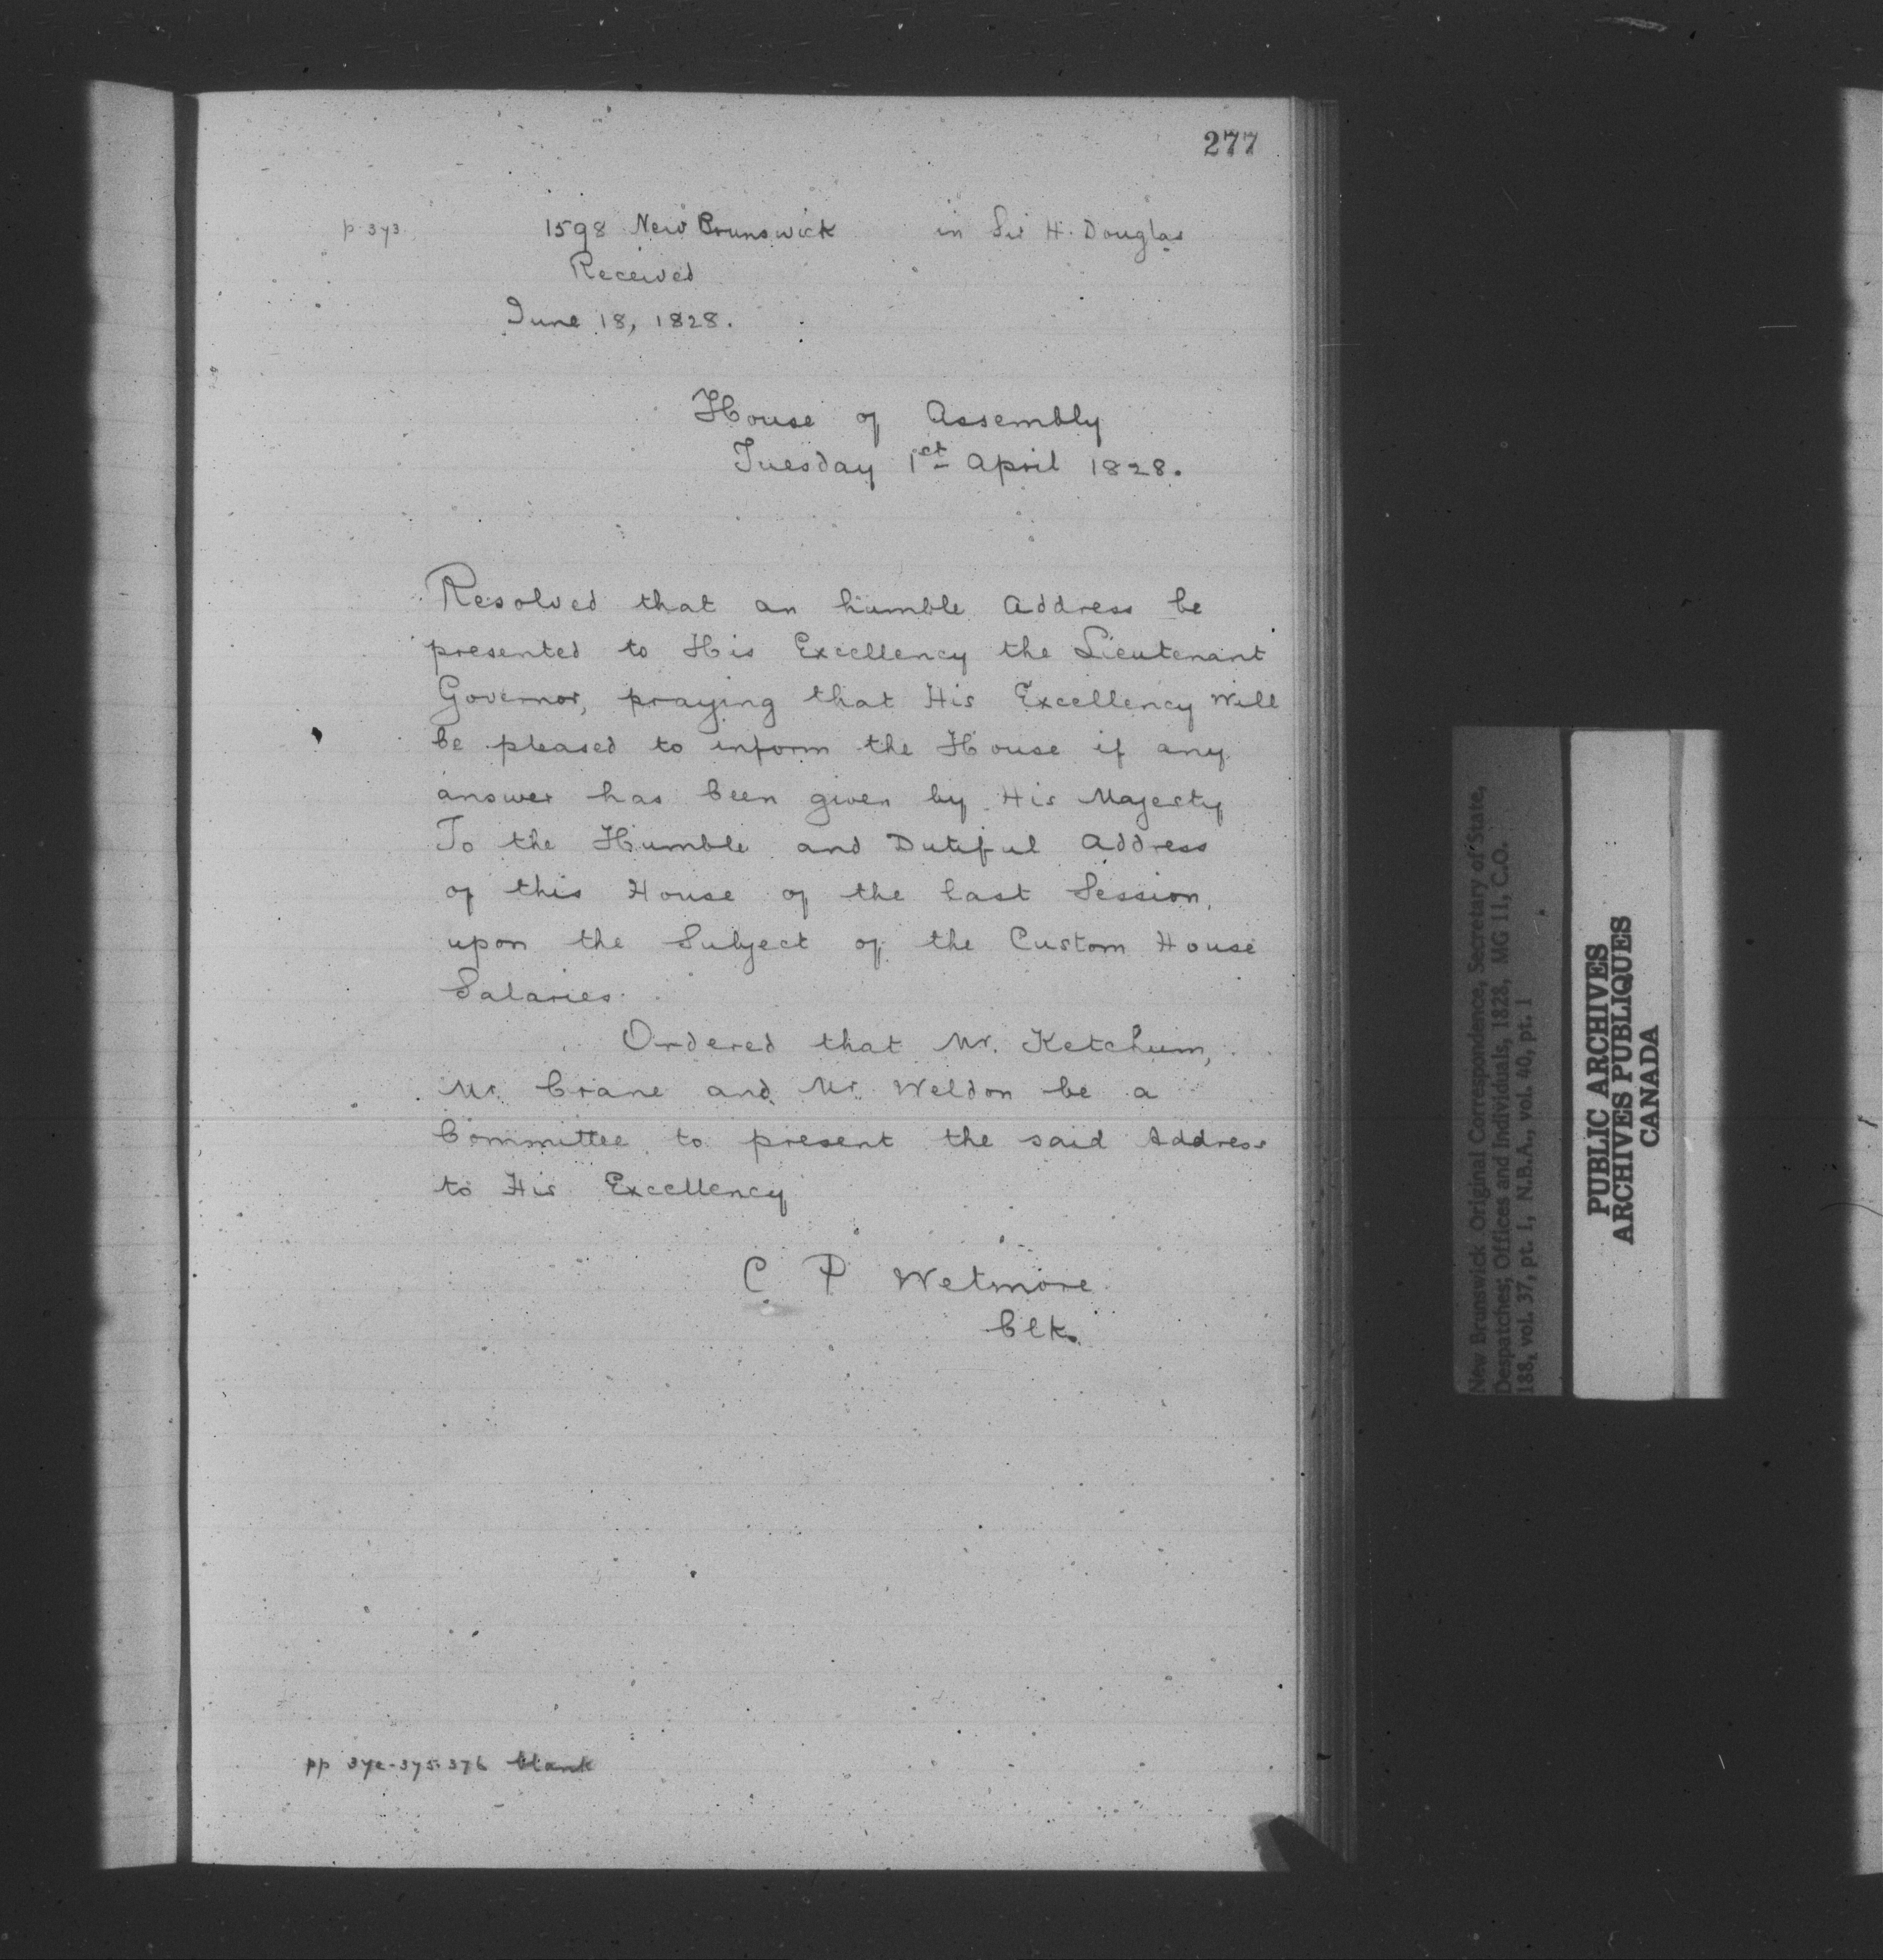 277
p 373. 1598 New Brunswick in Sir H. Douglas
Received
June 18, 1828.
House of Assembly
Tuesday 1st April 1828.
Resolved that an humble Address be
presented to His Excellency the Lieutenant
Governor, praying that His Excellency will
be pleased to inform the House if any
answer has been given by His Majesty
To the Humble and Dutiful Address
of this House of the last Session,
upon the Subject of the Custom House
Salaries.
Ordered that Mr. Ketchum,
Mr. Crane and Mr. Weldon be a
Committee to present the said Address
to His Excellency
C P Wetmore
Clk.
pp 375-376 blank
New Brunswick Original Correspondence, Secretary of State,
Despatches; Offices and Individuals, 1828, MG 11, C.O.
188, vol. 37, pt. 1, N.B.A., vol. 40, pt. 1
PUBLIC ARCHIVES
ARCHIVES PUBLIQUES
CANADA